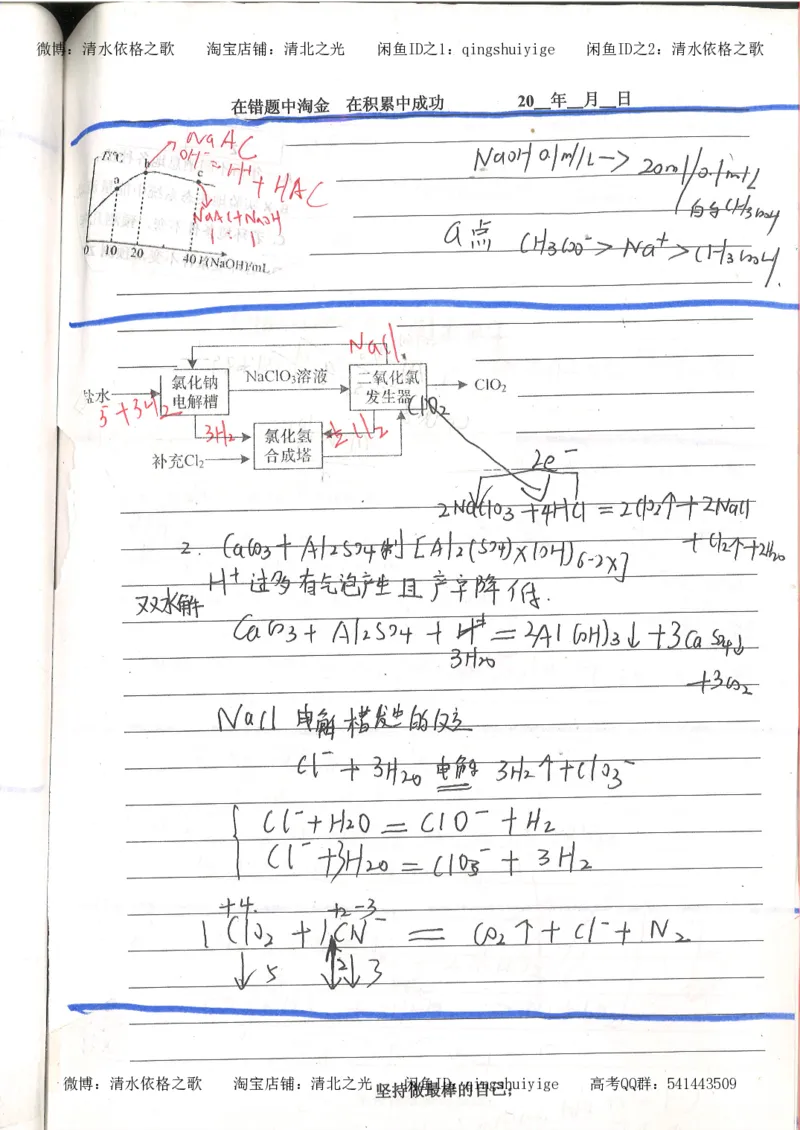 微博：清水依格之歌 淘宝店铺：清北之光 闲鱼ID之1：qingshuiyige 闲鱼ID之2：清水依格之歌
在错题中淘金 在积累中成功 20__年__月__日
NaAC
OH⁻=H⁺
+HAC
T/℃
a b c
NaAC+NaOH
1 : 1
0 10 20 40 V(NaOH)/mL
NaOH 0.1m/L→20ml/0.1m/L
CH₃COOH
a点 CH₃COO⁻>Na⁺>CH₃COOH.
NaCl
盐水 氯化钠电解槽 NaClO₃溶液 二氧化氯发生器 ClO₂
5+3H₂
ClO₂
3H₂ 氯化氢合成塔 Cl₂
补充Cl₂
2e⁻
2NaClO₃+4HCl=2ClO₂↑+2NaCl
+Cl₂↑+2H₂O
2. CaCO₃+Al₂SO₄制[Al₂(SO₄)x(OH)6-2x]
H⁺过多有气泡产生且产率降低.
双水解
CaCO₃+Al₂SO₄+3H₂O=2Al(OH)₃↓+3CaSO₄↓
+3CO₂
NaCl 电解槽发生的反应
Cl⁻+3H₂O 电解 3H₂↑+ClO₃⁻
Cl⁻+H2O=ClO⁻+H₂
Cl⁻+3H₂O=ClO₃⁻+3H₂
+4 +2-3
1ClO₂+1CN⁻=CO₂↑+Cl⁻+N₂
↓5 2↓3
微博：清水依格之歌 淘宝店铺：清北之光 闲鱼ID：qingshuiyige 高考QQ群：541443509
坚持做最棒的自己；